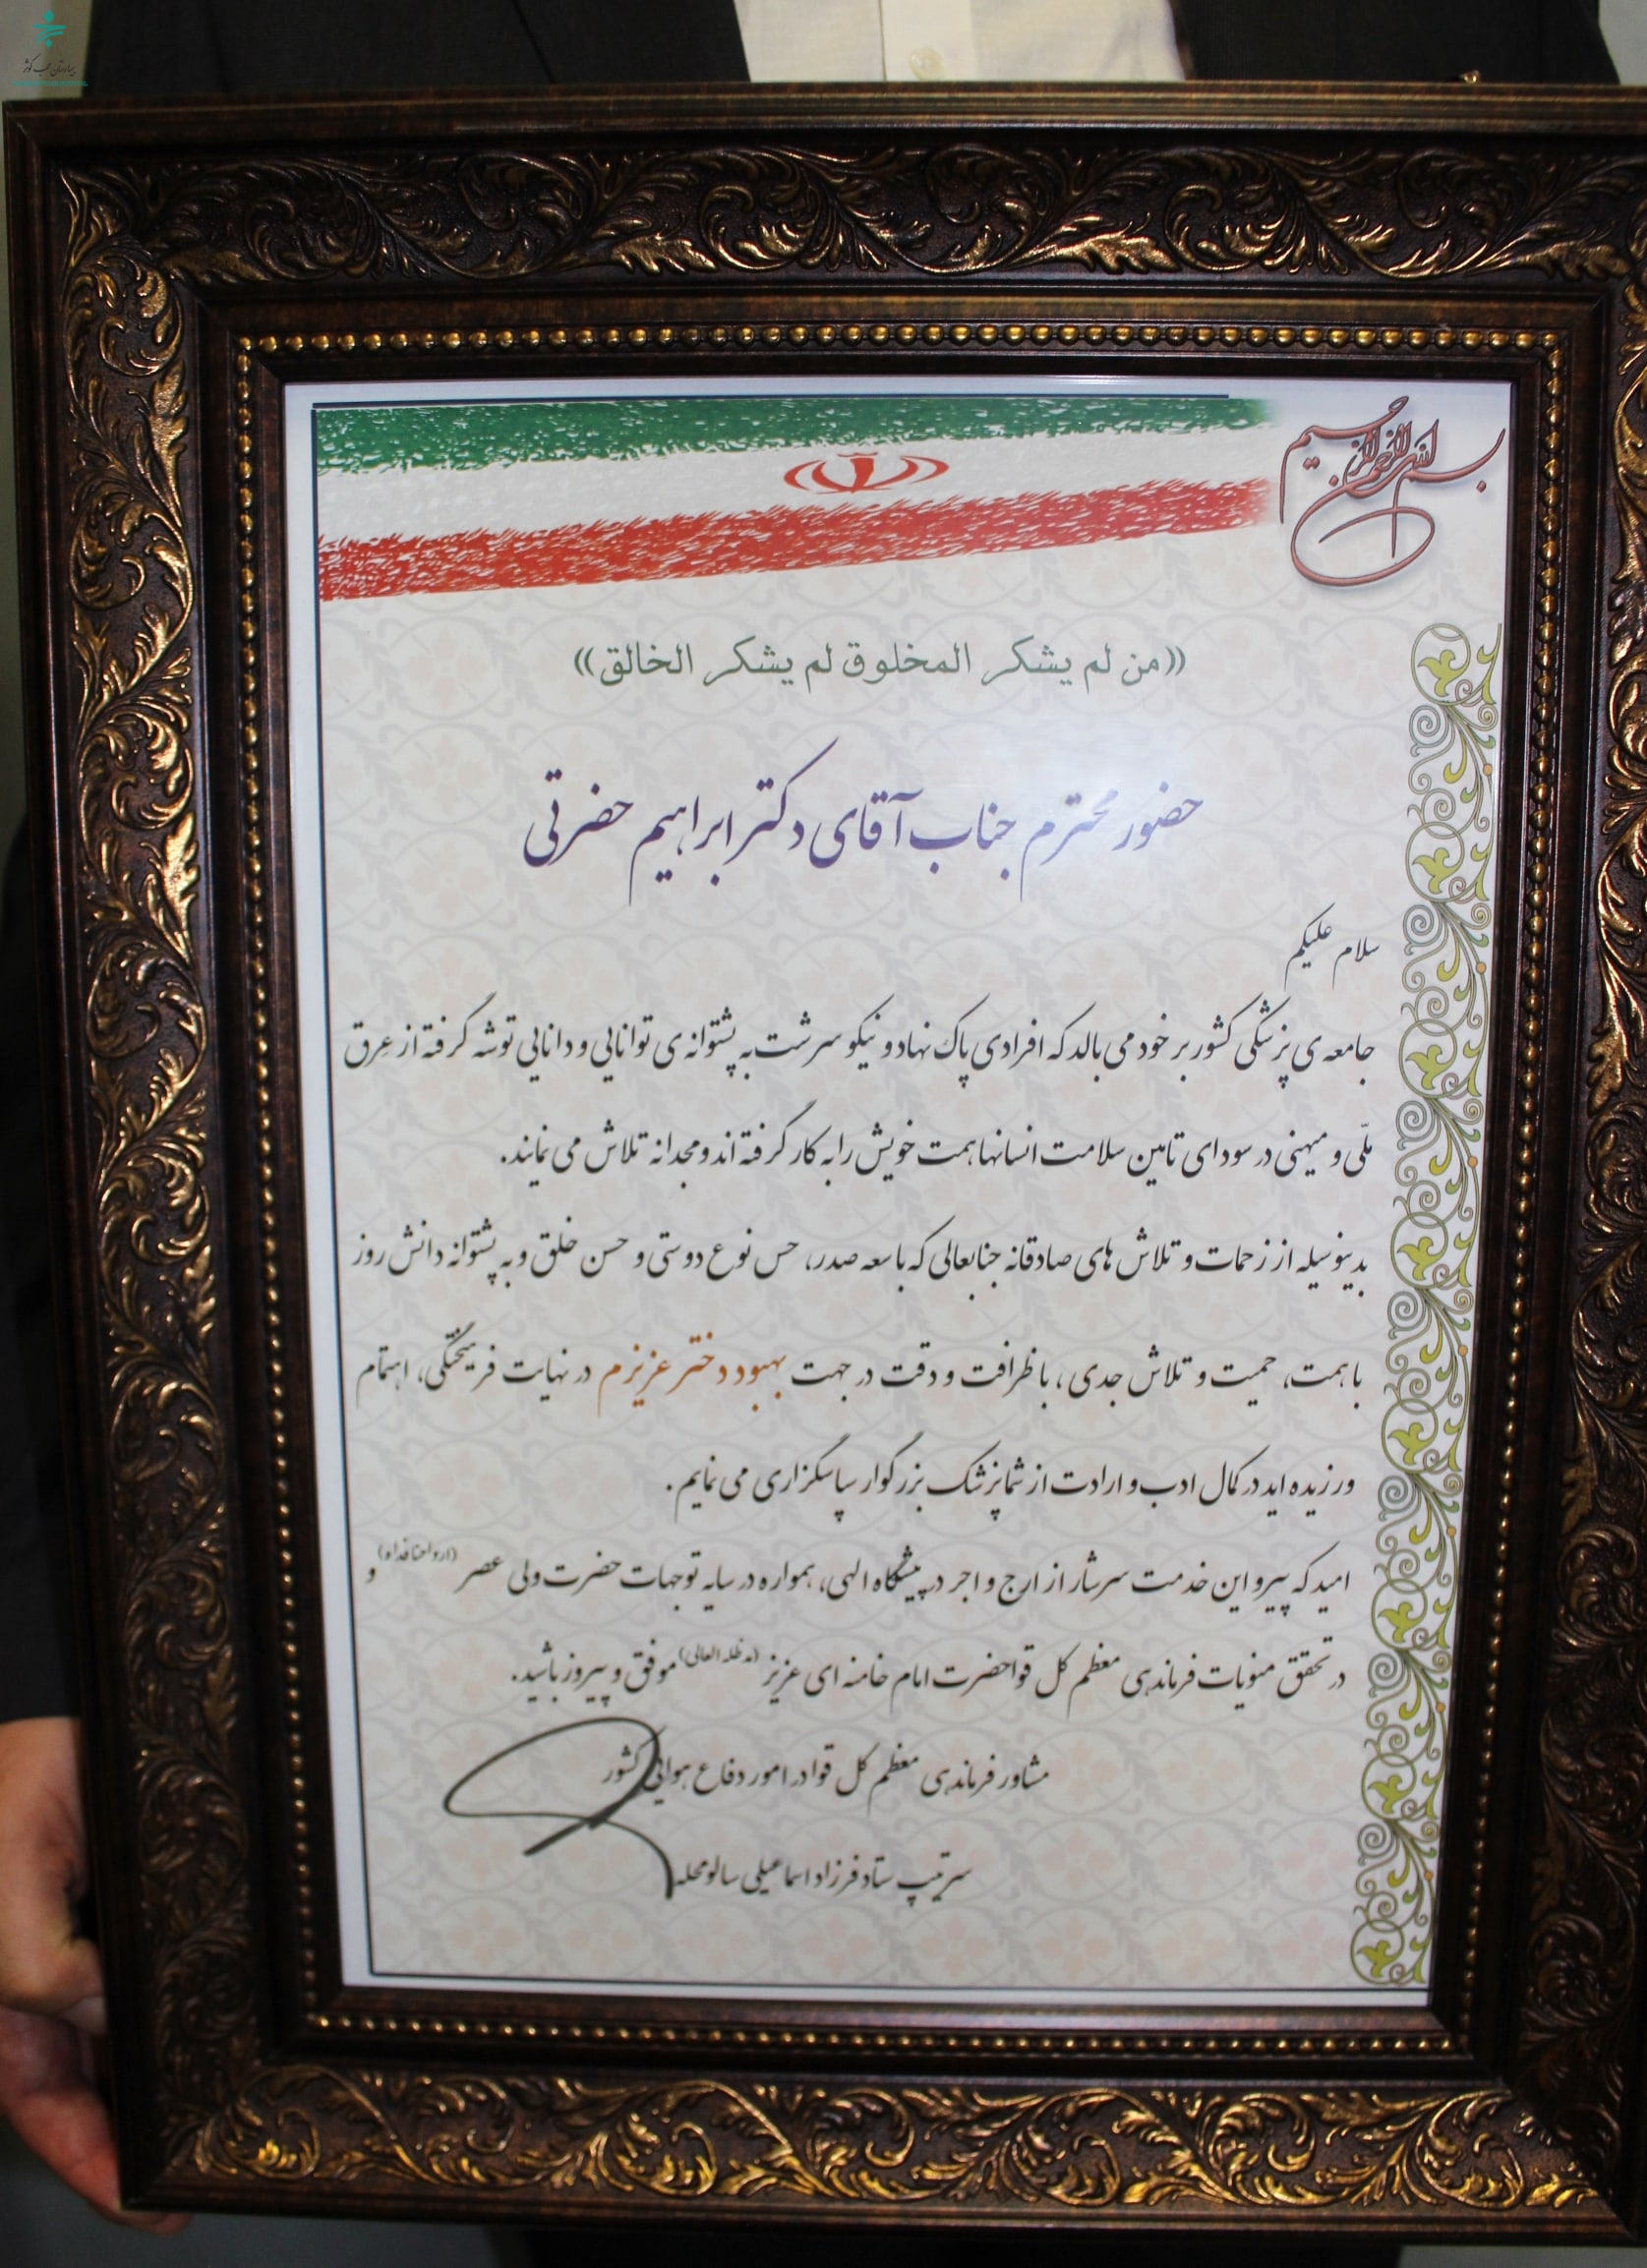 بیمارستان محب کوثر
بسم الله الرحمن الرحیم
((من لم یشکر المخلوق لم یشکر الخالق))
حضور محترم جناب آقای دکتر ابراهیم حضرتی
سلام علیکم
جامعه ی پزشکی کشور بر خود می بالد که افرادی پاک نهاد و نیکو سرشت به پشتوانه ی توانایی و دانایی توشه گرفته از عِرق
ملّی و میهنی در سودای تامین سلامت انسانها همت خویش را به کار گرفته اند و مجدانه تلاش می نمایند.
بدینوسیله از زحمات و تلاش های صادقانه جنابعالی که با سعه صدر، حس نوع دوستی و حسن خلق و به پشتوانه دانش روز
با همت، حمیت و تلاش جدی، با ظرافت و دقت در جهت بهبود دختر عزیزم در نهایت فرهیختگی، اهتمام
ورزیده اید در کمال ادب و ارادت از شما پزشک بزرگوار سپاسگزاری می نمایم.
امید که پیرو این خدمت سرشار از ارج و اجر در پیشگاه الهی، همواره در سایه توجهات حضرت ولی عصر (ارواحنا فداه) و
در تحقق منویات فرماندهی معظم کل قوا حضرت امام خامنه ای عزیز (مدظله العالی) موفق و پیروز باشید.
مشاور فرماندهی معظم کل قوا در امور دفاع هوایی کشور
سرتیپ ستاد فرزاد اسماعیلی سالومحله